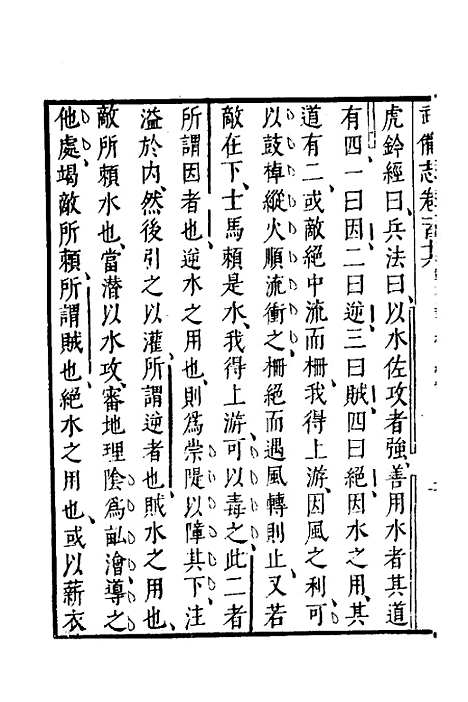 武備志卷一百十六
虎鈐經曰、兵法曰、以水佐攻者強、善用水者其道
有四、一曰因、二曰逆、三曰賊、四曰絕、因水之用、其
道有二、或敵絕中流而柵、我得上游、因風之利、可
以鼓棹縱火順流衝之、柵絕而遇風轉則止、又若
敵在下、士馬賴是水、我得上游、可以毒之、此二者
所謂因者也、逆水之用也、則為崇隄以障其下、注
溢於內、然後引之以灌、所謂逆者也、賊水之用也、
敵所賴水也、當潛以水攻、審地理陰為畎澮導之
他處、竭敵所賴、所謂賊也、絕水之用也、或以薪衣